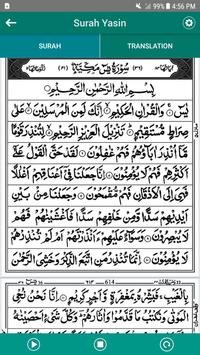 4:56 PM
Surah Yasin
SURAH
TRANSLATION
سُوْرَةُ يٰسٓ مَكِّيَّةٌ
بِسْمِ اللّٰهِ الرَّحْمٰنِ الرَّحِيْمِ
يٰسٓ ۚ وَالْقُرْاٰنِ الْحَكِيْمِ ۙ اِنَّكَ لَمِنَ الْمُرْسَلِيْنَ ۙ عَلٰى
صِرَاطٍ مُّسْتَقِيْمٍ ؕ تَنْزِيْلَ الْعَزِيْزِ الرَّحِيْمِ ۙ لِتُنْذِرَ قَوْمًا
مَّاۤ اُنْذِرَ اٰبَآؤُهُمْ فَهُمْ غٰفِلُوْنَ لَقَدْ حَقَّ الْقَوْلُ عَلٰۤى
اَكْثَرِهِمْ فَهُمْ لَا يُؤْمِنُوْنَ اِنَّا جَعَلْنَا فِيْۤ اَعْنَاقِهِمْ اَغْلٰلًا
فَهِيَ اِلَى الْاَذْقَانِ فَهُمْ مُّقْمَحُوْنَ وَجَعَلْنَا مِنْۢ بَيْنِ
اَيْدِيْهِمْ سَدًّا وَّمِنْ خَلْفِهِمْ سَدًّا فَاَغْشَيْنٰهُمْ فَهُمْ
لَا يُبْصِرُوْنَ وَسَوَآءٌ عَلَيْهِمْ ءَاَنْذَرْتَهُمْ اَمْ لَمْ تُنْذِرْهُمْ
لَا يُؤْمِنُوْنَ اِنَّمَا تُنْذِرُ مَنِ اتَّبَعَ الذِّكْرَ وَخَشِيَ الرَّحْمٰنَ
614
بِالْغَيْبِ ۚ فَبَشِّرْهُ بِمَغْفِرَةٍ وَّاَجْرٍ كَرِيْمٍ اِنَّا نَحْنُ نُحْيِ